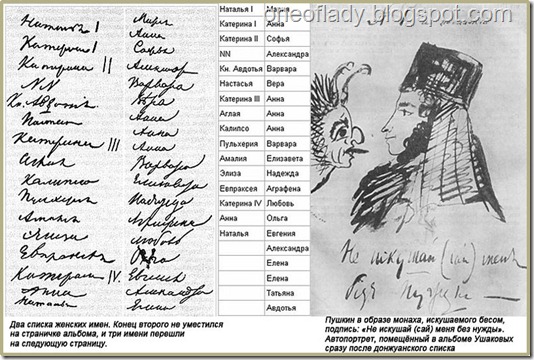 prieoflady.blogspot.com
Наталья I
Катерина I
Катерина II
NN
Кн. Авдотия
Настасья
Катерина III
Аглая
Калипсо
Пулхерия
Амалия
Элиза
Евпраксея
Катерина IV.
Анна
Наталья
Мария
Анна
Софья
Александра
Варвара
Вера
Анна
Анна
Анна
Варвара
Елизавета
Надежда
Аграфена
Любовь
Ольга
Евгения
Александра
Елена
Наталья I Мария
Катерина I Анна
Катерина II Софья
NN Александра
Кн. Авдотья Варвара
Настасья Вера
Катерина III Анна
Аглая Анна
Калипсо Анна
Пульхерия Варвара
Амалия Елизавета
Элиза Надежда
Евпраксея Аграфена
Катерина IV Любовь
Анна Ольга
Наталья Евгения
Александра
Елена
Елена
Татьяна
Авдотья
Не искушай (сай) меня
без нужды
Два списка женских имен. Конец второго не уместился
на страничке альбома, и три имени перешли
на следующую страницу.
Пушкин в образе монаха, искушаемого бесом,
подпись: «Не искушай (сай) меня без нужды».
Автопортрет, помещённый в альбоме Ушаковых
сразу после донжуанского списка